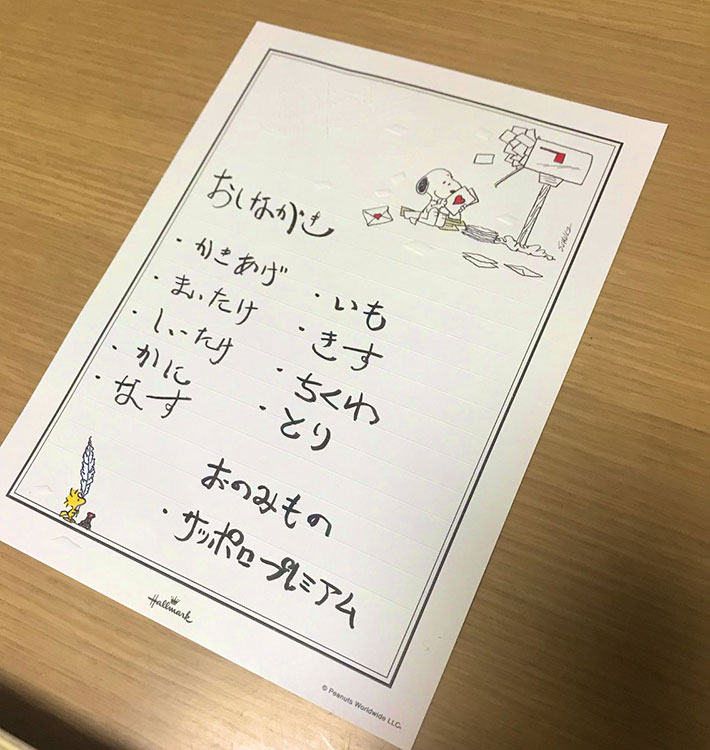 おしながき
・かきあげ
・まいたけ
・しいたけ
・かに
・なす
・いも
・きす
・ちくわ
・とり
おのみもの
・サッポロプレミアム
Hallmark
© Peanuts Worldwide LLC.